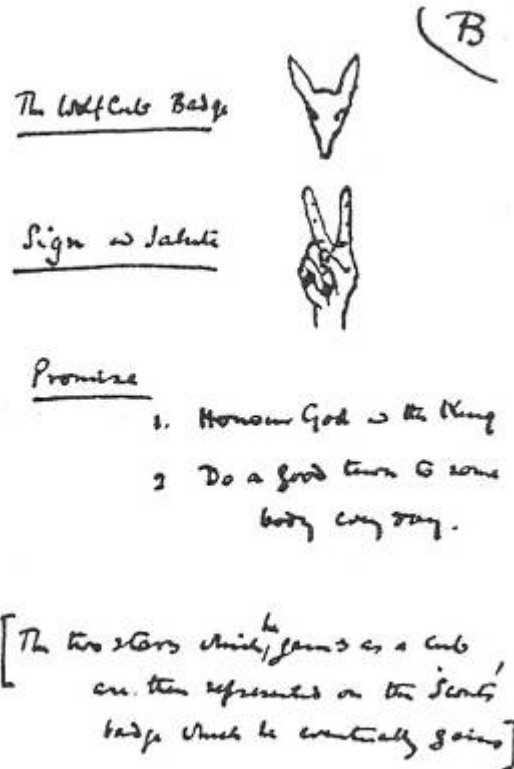 B
The Wolf Cub Badge
Sign & Salute
Promise
1. Honour God & the King
2 Do a good turn to some
body every day.
[The two stars which he gains as a cub
are then represented on the Scouts'
badge which he eventually gains]